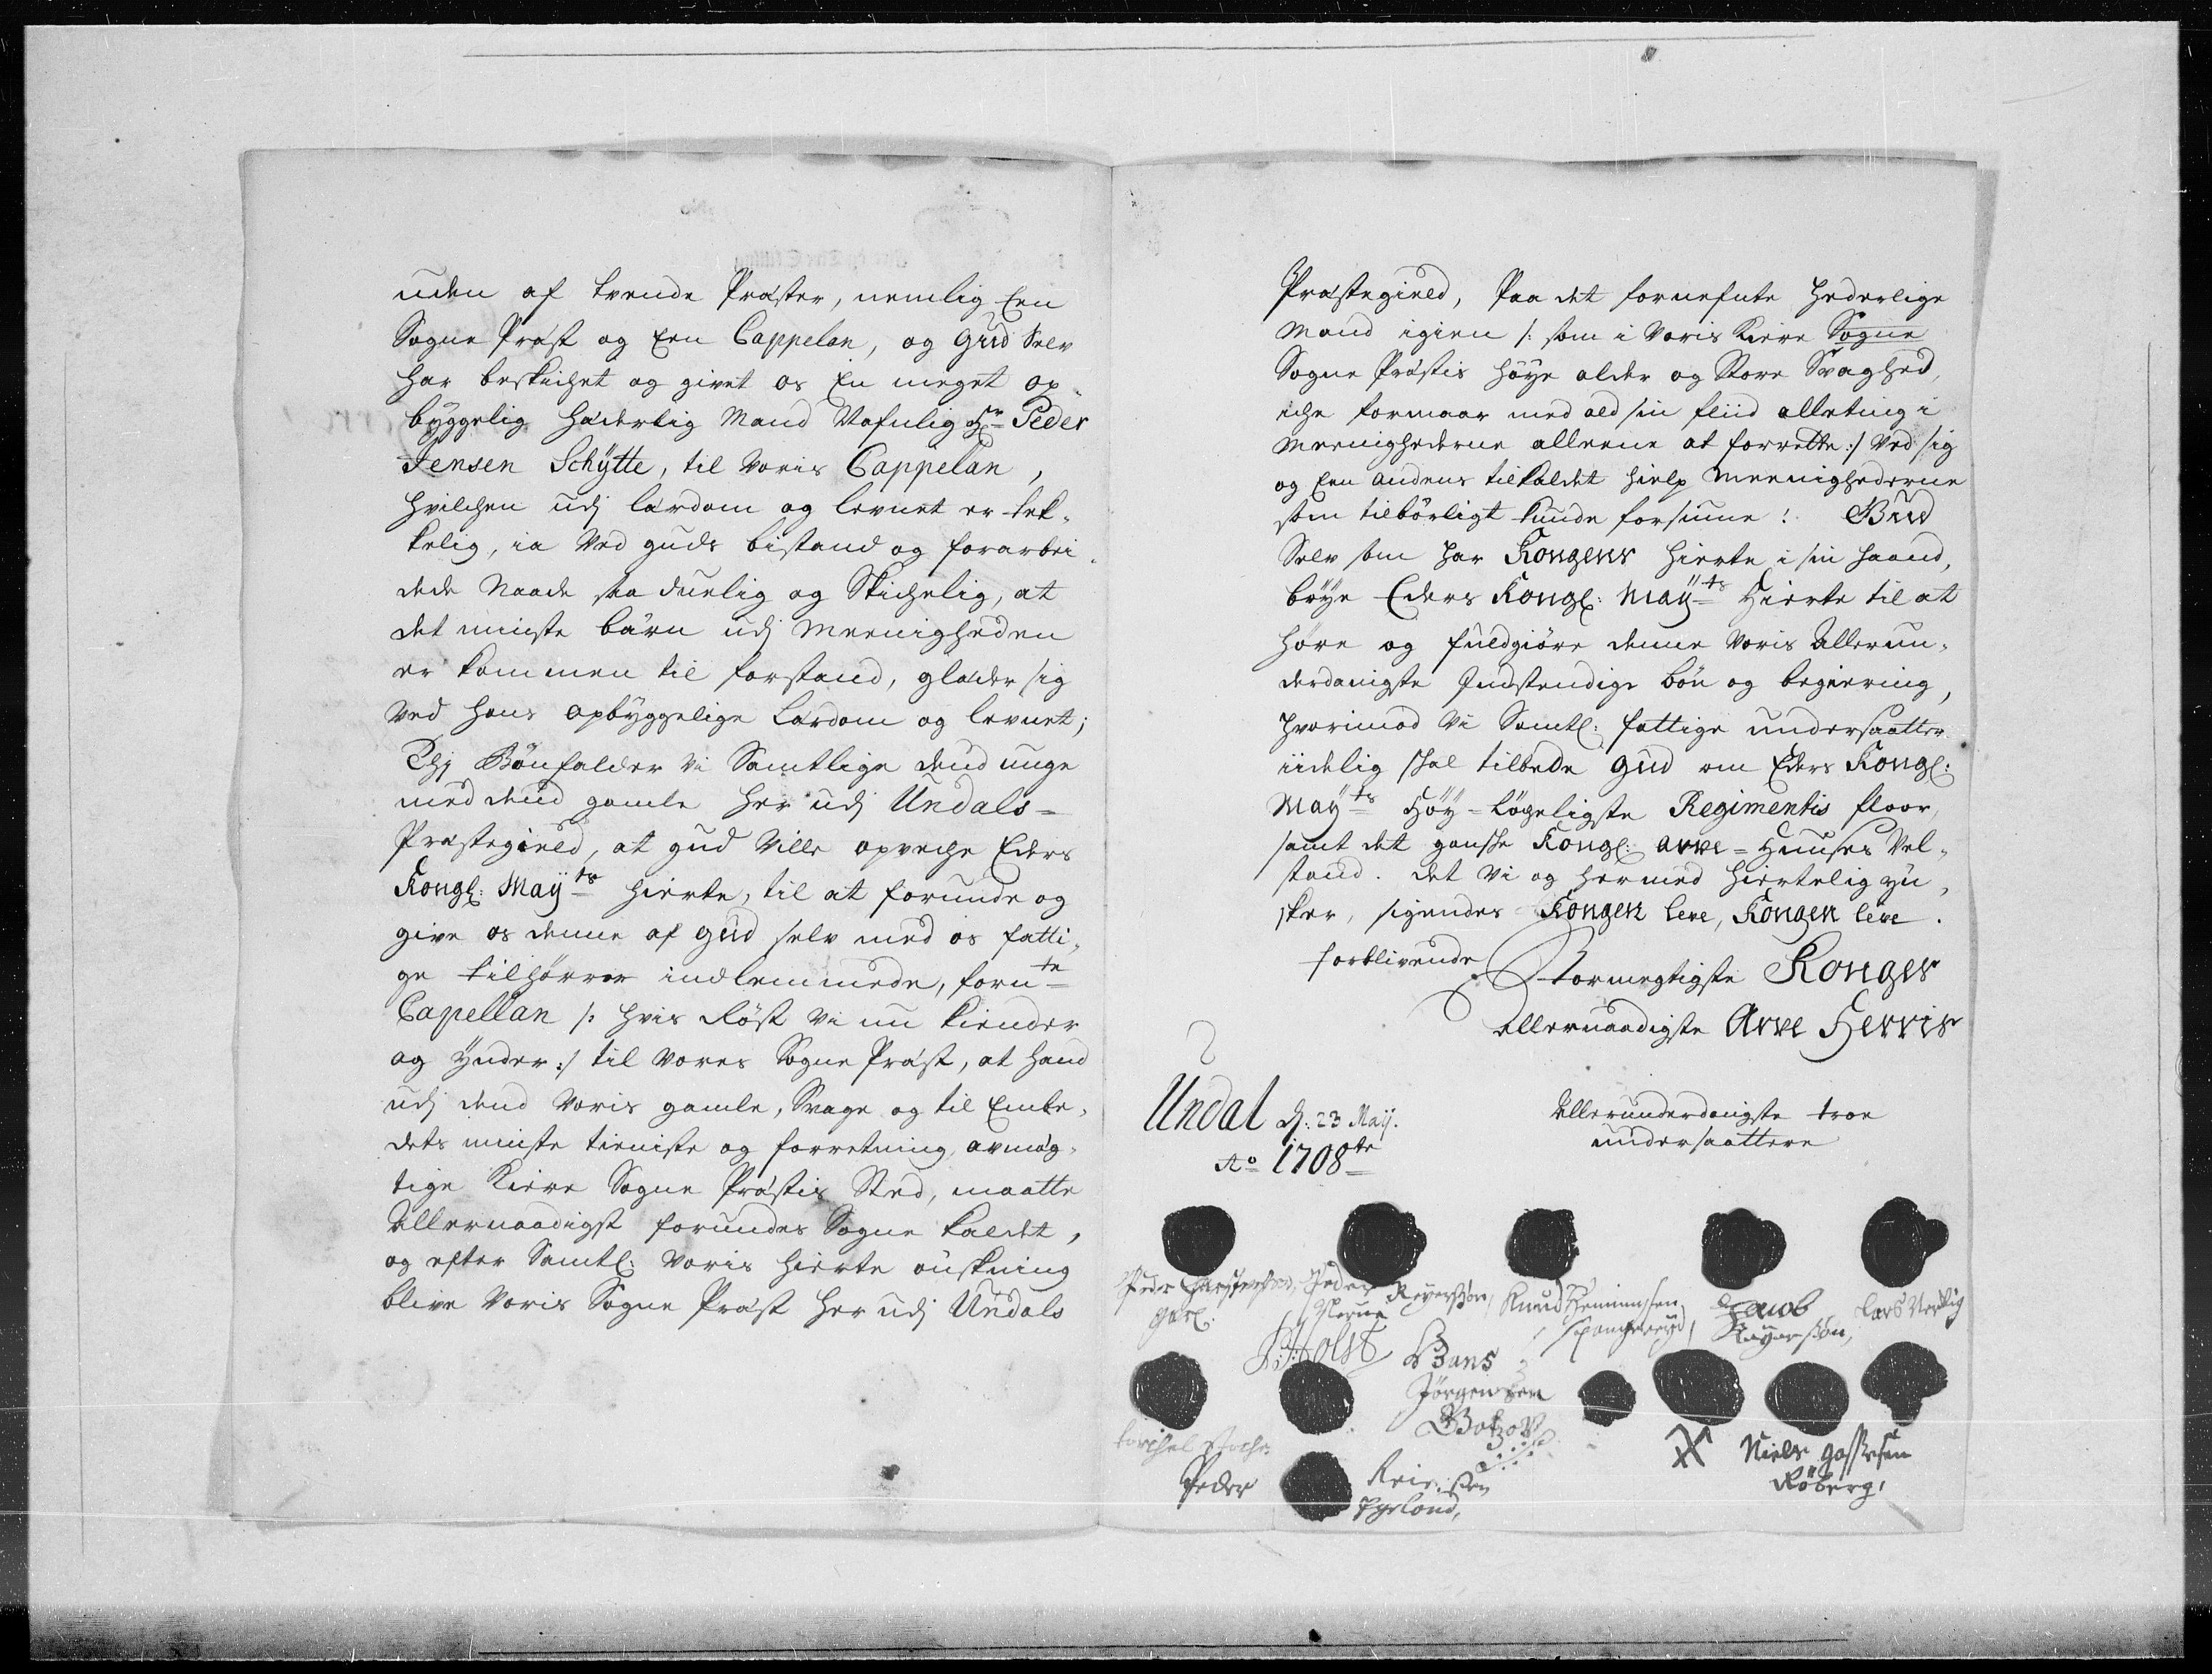 uden af tvende Præster, nemlig Een
Sogne Præst og Een Cappelan, og Gud Selv
har beskichet og givet os En meget op„
byggelig Hæderlig Mand Nafnlig Hr Peder
Jensen Schÿtte, til Voris Cappelan,
hvilchen udj lærdom og levnet er tek„
kelig, ia Ved Guds bistand og forarbei„
dede Naade saa duelig og Skichelig, at
det minste bärn udj Meenigheden
er kommen til forstand, glæder sig
Ved hans opbyggelige Lærdom og levnet;
Thj Bönfalder Vi Samtlige dend unge
med dend gamle her udj Undals-
Præstegield, at Gud Ville opveche Eders
Kongl: Maÿts hierte, til at forunde og
give os denne af Gud selv med os fatti„
ge tilhörrer indlemmede, fornte
Capellan /: hvis Röst Vi nu kiender
og Ynder :/ til Vores Sogne Præst, at hand
udj dend Voris gamle, Svage og til Embe„
dets minste tieniste og forretning avmæg„
tige Kiere Sogne Præstis Sted, maatte
Allernaadigst forundes Sogne kaldet,
og efter Samtl: Voris hierte önskning
blive Voris Sogne Præst her udj Undals
Præstegield, Paa det fornefnte Hederlige
Mand igien /: som i Voris Kiere Sogne
Sogne Præstis höye alder og Store Svaghed,
iche formaar med ald sin fliid alleting i
Meenighederne alleene at forrette :/ Ved sig
og Een Andens tilkaldet hielp Meenighederne
som tilbörligt kunde forsiune! Gud
Selv som har Kongens hierte i sin haand,
böye Eders Kongl: Maÿts Hierte til at
höre og fuldgiöre denne Voris Allerun„
derdanigste Indstendige bön og begiering,
hvorimod Vi Samtl: fattige undersaatter
iidelig skal tilbede Gud om Eders Kongl:
Maÿts Höy-Löcheligste Regimentis floor,
samt det gansche Kongl: Arve-Huuses Vel„
stand. det Vi og hermed hiertelig yn„
sker, sigendes Kongen leve, Kongen leve.
forblivende
Stormegtigste Konges
Allernaadigste Arve Herris
Undal d: 23 Maÿ.
Ao 1708te
Allerunderdanigste troe
undersaattere
Peder Christensen, Peder Reyersßön, Knud Hemingsen Jacob Lars Verdig
Reyersön,
Hans
Jörgensen
Torchel
Peder Reiersen
Niels Gassesen
Röberg,